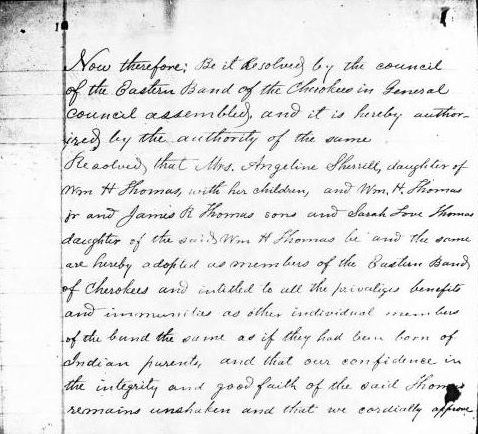 Now therefore; Be it Resolved by the council
of the Eastern Band of the Cherokees in General
council assembled, and it is hereby author-
ized by the authority of the same
Resolved, that Mrs. Angeline Sherrill, daughter of
Wm H Thomas, with her children, and Wm. H. Thomas
Jr and James R Thomas sons and Sarah Love Thomas
daughter of the said Wm H Thomas be and the same
are hereby adopted as members of the Eastern Band
of Cherokees and intitled to all the privaliges benefits
and immunities as other individual members
of the band the same as if they had been born of
Indian parents, and that our confidence in
the integrity and good faith of the said Thomas
remains unshaken and that we cordially approve